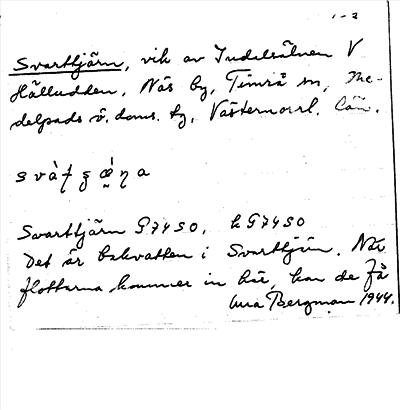 1-2
Svarttjärn, vik av Indalsälven V
Hälludden, Näs by, Timrå sn, Me-
delpads ö. doms. tg, Västernorrl. län.
Svarttjärn G7450, k G7450
Det är bakvatten i Svarttjärn. När
flottarna kommer in här, kan de få
Bergman 1944.